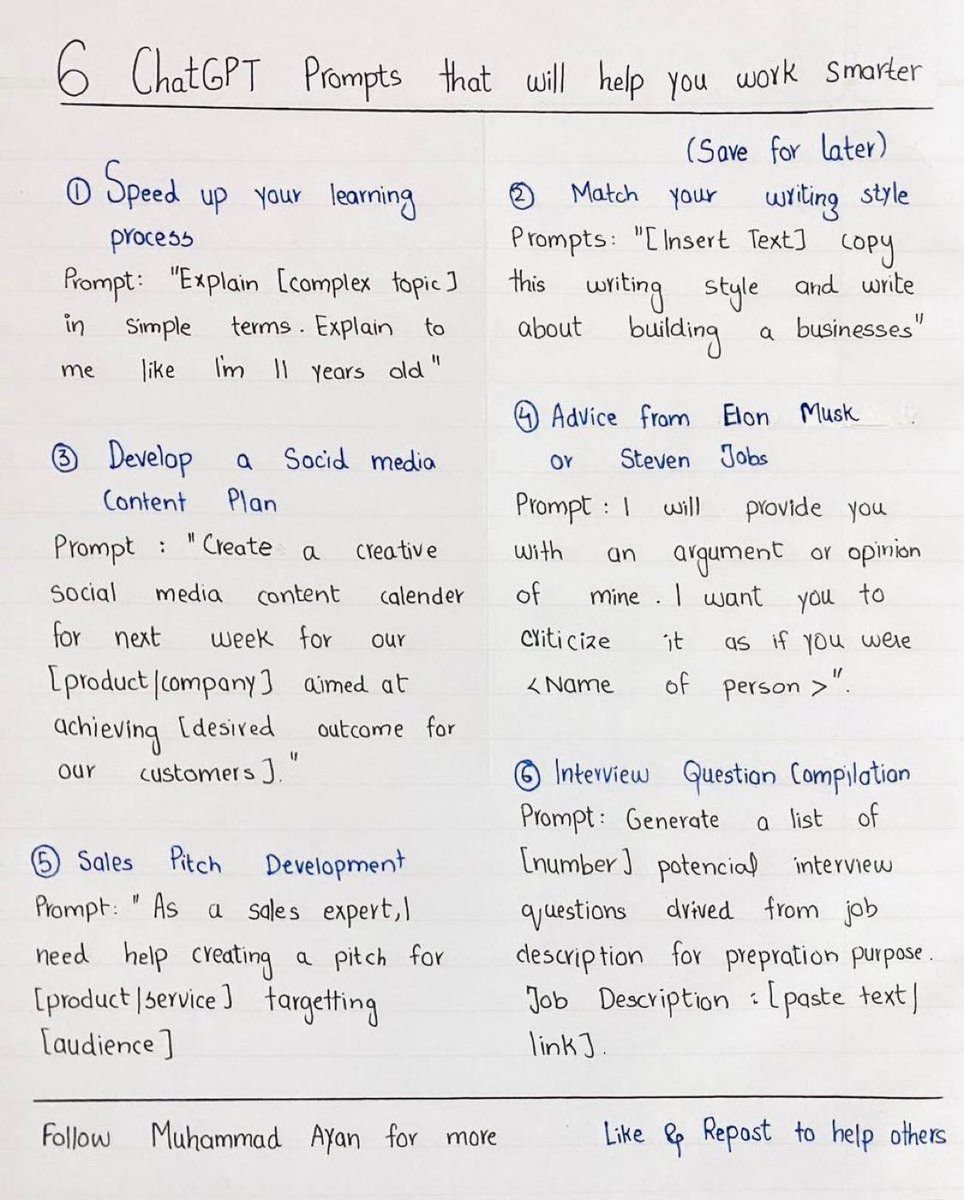 6 ChatGPT Prompts that will help you work smarter
(Save for later)
① Speed up your learning
process
Prompt: "Explain [complex topic]
in simple terms. Explain to
me like I'm 11 years old"
② Match your writing style
Prompts: "[Insert Text] copy
this writing style and write
about building a businesses"
③ Develop a Socid media
Content Plan
Prompt : "Create a creative
social media content calender
for next week for our
[product/company] aimed at
achieving [desired outcome for
our customers]."
④ Advice from Elon Musk
or Steven Jobs
Prompt : I will provide you
with an argument or opinion
of mine. I want you to
criticize it as if you were
<Name of person>".
⑤ Sales Pitch Development
Prompt: "As a sales expert, I
need help creating a pitch for
[product/service] targetting
[audience]
⑥ Interview Question Compilation
Prompt: Generate a list of
[number] potencial interview
questions drived from job
description for prepration purpose.
Job Description : [paste text/
link].
Follow Muhammad Ayan for more
Like & Repost to help others